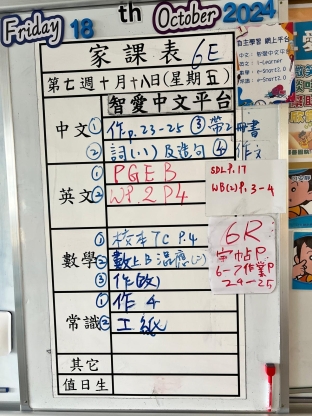 Friday 18th October 2024
家課表 6E
第七週十月十八日(星期五)
智愛中文平台
自主學習 網上平台
中文 ① 作p.23-25 ③ 帶2冊書
② 詞(八)及造句 ④ 作文
英文 ① PGE B
② WP.2 P4
SDL P.17
WB(2)P.3-4
數學 ① 校本TC P.4
②
③ 作(改)
常識 ① 作 4
② 工紙
6R
字帖P.
6-7作業P
24-25
其它
值日生